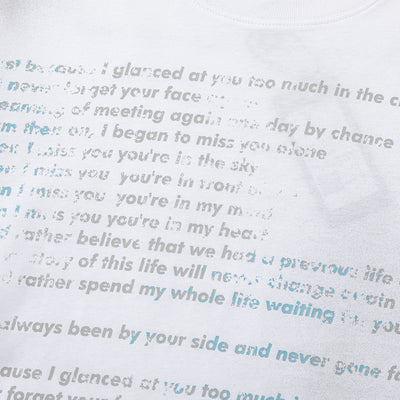 because I glanced at you too much in the
never forget your face
of meeting again one day by chance
then on, I began to miss you alone
I miss you you're in the sky
I miss you you're in front
I miss you you're in my mind
I miss you you're in my heart
rather believe that we had a previous life
story of this life will never change again
rather spend my whole life waiting for you
always been by your side and never gone
I glanced at you too much
forget your